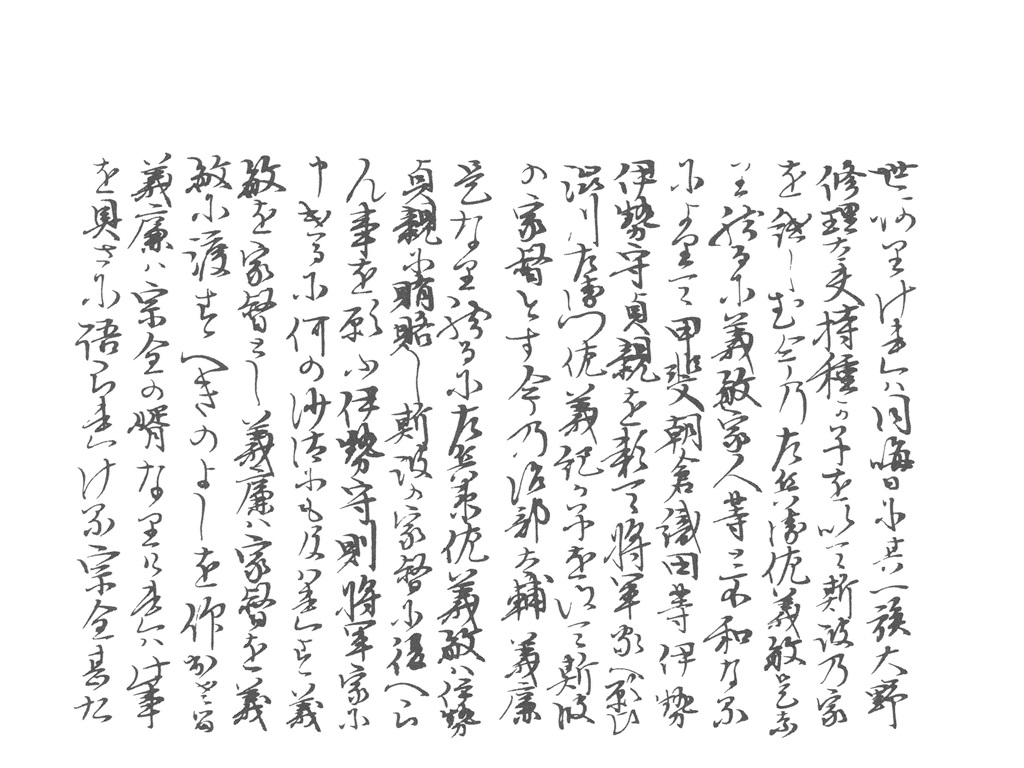 世ありけれハ同晦日に其一族大野
修理大夫持種か子を以て斯波乃家
を継しむ今乃左兵衛佐義敏是な
り然るに義敏家人等と不和なる
によりて甲斐朝倉織田等伊勢
伊勢守貞親を頼て将軍家へ願ひ
渋川左衛門佐義鏡か子を以て斯波
の家督とす今乃治部大輔義廉
是なり然るに左兵衛佐義敏ハ伊勢
貞親に賄賂し斯波の家督に復へら
ん事を願ふ伊勢守則将軍家に
申けるに何の沙汰にも及ハれす義
敏を家督とし義廉ハ家督を義
敏に渡すへきのよしを仰出さる
義廉ハ宗全の婿なりけれハ此事
を具さに語られける宗全甚た